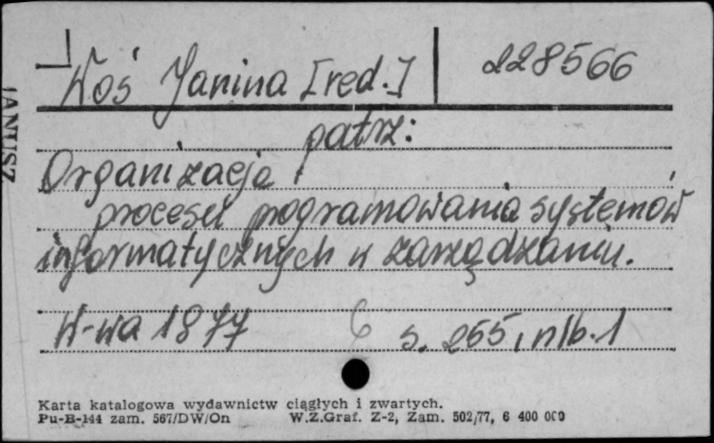 Woś Janina [red.] 228566
patrz:
Organizacja
procesu programowania systemów
informatycznych w zarządzaniu.
W-wa 1877 6 s. 255, nlb. 1
Karta katalogowa wydawnictw ciągłych i zwartych.
Pu-B-144 zam. 567/DW/On W.Z.Graf. Z-2, Zam. 502/77, 6 400 000
JANUSZ